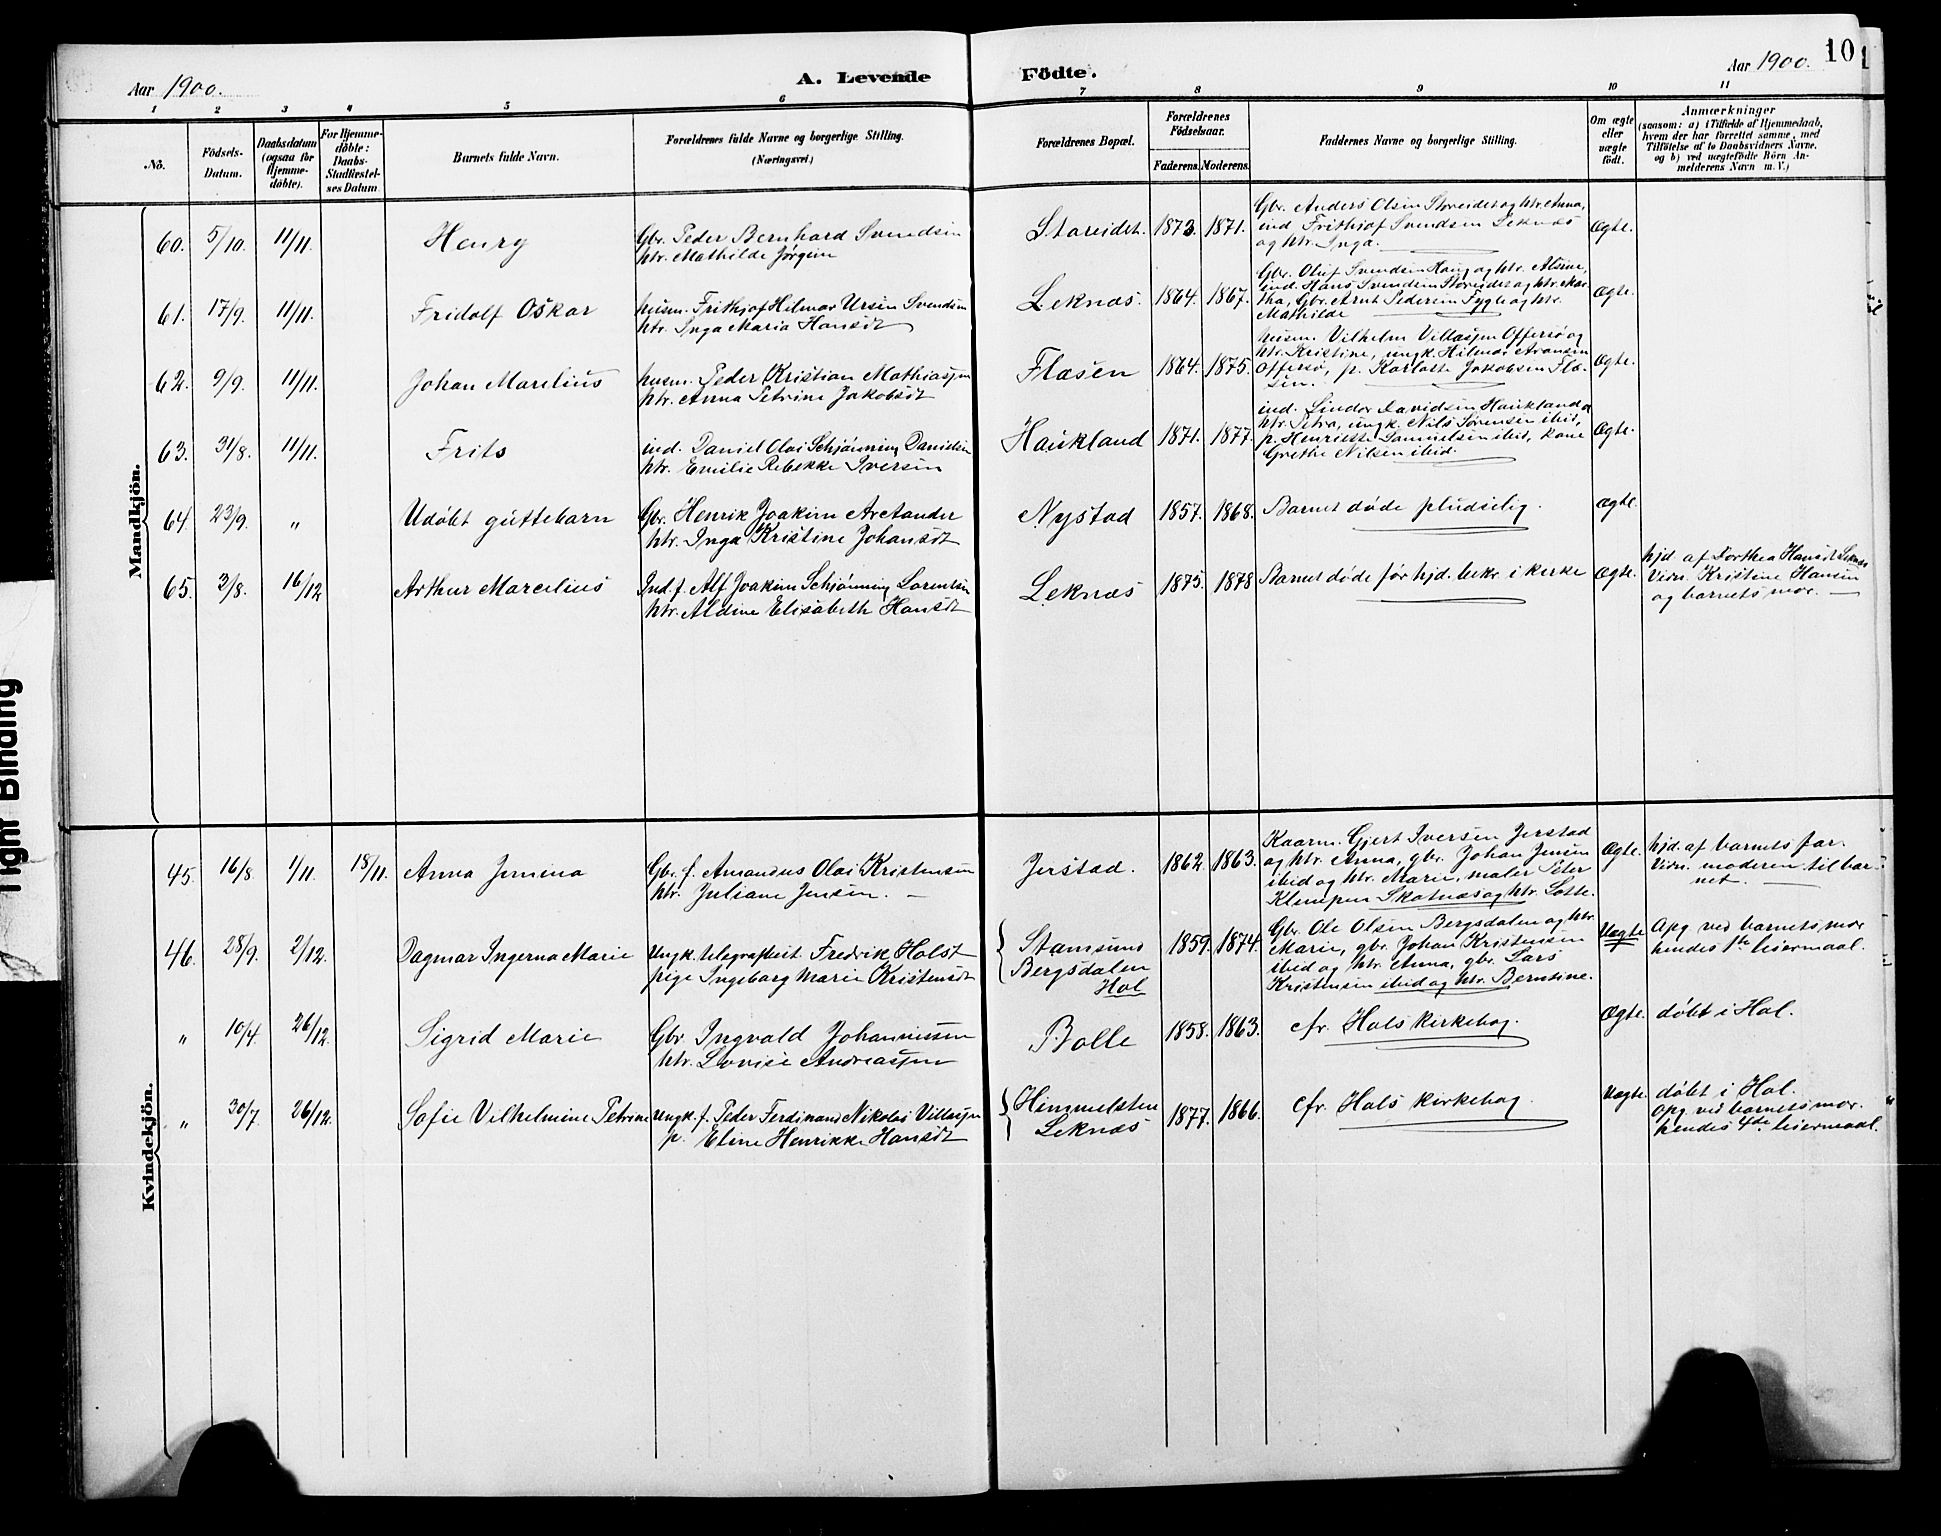 Aar 1900.
A. Levende Födte.
Aar 1900.
10
1 2 3 4 5 6 7 8 9 10 11
No.
Födsels-Datum.
Daabsdatum (ogsaa for Hjemmedöbte).
For Hjemmedöbte: Daabs-Stadfæstelses Datum.
Barnets fulde Navn.
Forældrenes fulde Navne og borgerlige Stilling. (Næringsvei.)
Forældrenes Bopæl.
Forældrenes Födselsaar.
Faderens.
Moderens.
Faddernes Navne og borgerlige Stilling.
Om ægte eller uægte födt.
Anmærkninger
(saasom: a) i Tilfælde af Hjemmedaab, hvem der har forrettet samme, med Tilföielse af to Daabsvidners Navne, og b) ved uægtefödte Börn Anmelderens Navn m.V.)
Mandkjön.
60. 5/10. 11/11. Henry
Gbr. Peder Bernhard Svendsen
htr. Mathilde Jörgine
Storeidet. 1873. 1871.
Gbr. Anders Olsen Storeidet og htr. Anna,
ind. Frithjof Svendsen Leknæs
og htr. Inga.
Ægte.
61. 17/9. 11/11. Fridolf Oskar
husm. Frithjof Hilmar Ursin Svendsen
htr. Inga Maria Hansdt
Leknæs. 1864. 1867.
Gbr. Oluf Svendsen Haug og htr. Alsine,
ind. Hans Svendsen Storeidet og htr. Mar-
tha, Gbr. Arnt Pedersen Fygle og htr.
Mathilde
Ægte.
62. 9/9. 11/11. Johan Marelius
husm. Peder Kristian Mathiassen
htr. Anna Petrine Jakobsdt
Flæsen 1864. 1875.
husm. Vilhelm Villassen Offersø og
htr. Kristine, ungk. Hilmar Aronsen
Offersø, p. Karlotte Jakobsen Flæ-
sen.
Ægte.
63. 31/8. 11/11. Frits
ind. Daniel Olai Schjønning Danielsen
htr. Emilie Rebekke Iversen
Haukland 1871. 1877.
ind. Sindor Davidsen Haukland og
htr. Petra, ungk. Nils Sørensen ibid,
p. Henriette Samuelsen ibid, kone
Grethe Nilsen ibid.
Ægte.
64. 23/9. " Udøbt guttebarn
Gbr. Henrik Joakim Arctander
htr. Inga Kristine Johansdt
Nystad 1857. 1868. Barnet døde pludselig. Ægte.
65. 3/8. 16/12 Arthur Marcelius
Ind. f. Alf Joakim Schjønning Lorentsen
htr. Aldine Elisabeth Hansdt
Leknæs 1875. 1878 Barnet døde før hjd. bekr. i kirke Ægte.
hjd. af Dorthea Hansdt Leknæs
Vidn. Kristine Hansen
og barnets mor.
Kvindekjön.
45. 16/8. 1/11. 18/11. Anna Jemina
Gbr. f. Amandus Olai Kristensen
htr. Juliane Jensen.
Jerstad. 1862. 1863.
Kaarm. Gjert Iversen Jerstad
og htr. Anna, gbr. Johan Jensen
ibid og htr. Marie, maler Peter
Klumpen Skotnæs og htr. Lotte.
Ægte.
hjd. af barnets far.
Vidn. moderen til bar-
net.
46. 28/9. 2/12. Dagmar Ingerna Marie
Ungk. telegrafbest. Fredrik Holst
pige Ingeborg Marie Kristensdt
Stamsund
Bergsdalen
Hol
1859. 1874.
Gbr. Ole Olsen Bergsdalen og htr.
Marie, gbr. Johan Kristensen
ibid og htr. Anna, gbr. Lars
Kristensen ibid og htr. Berntine.
Uægte
Opg ved barnets mor
hendes 1ste leiermaal.
" 10/4. 26/12. Sigrid Marie
Gbr Ingvald Johannessen
htr. Lovise Andreassen
Bolle 1858. 1863. cfr. Hols kirkebog. Ægte. døbt i Hol.
" 30/7. 26/12. Sofie Vilhelmine Petrine
Ungk. f. Peder Ferdinand Nikolai Villassen
p. Eline Henrikke Hansdt
Himmelsten
Leknæs
1877. 1866. cfr. Hols kirkebog. Uægte.
døbt i Hol.
Opg ved barnets mor.
hendes 4de leiermaal.
Tight Binding